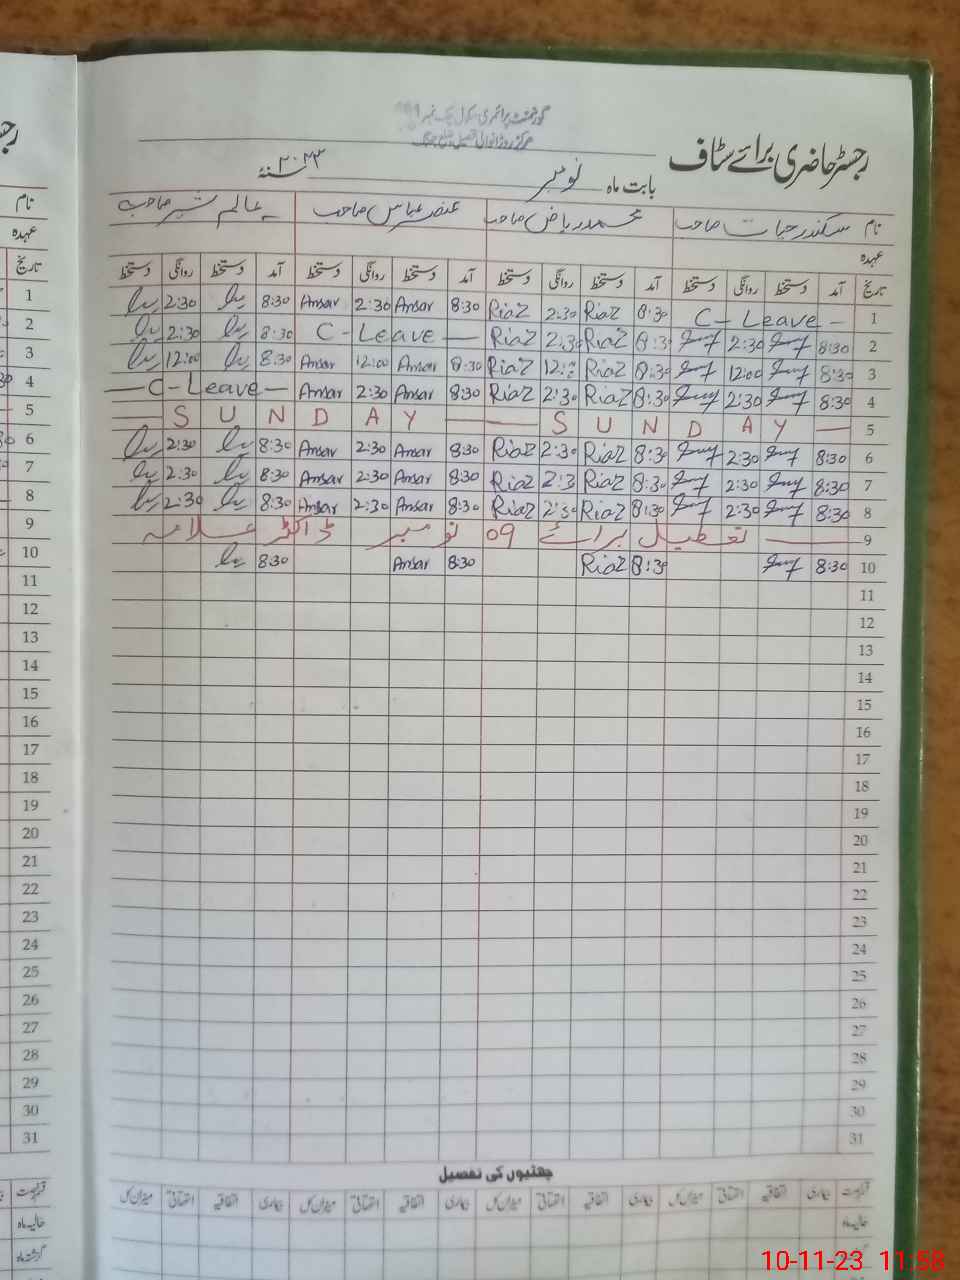 گورنمنٹ پرائمری سکول چک نمبر
رجسٹر حاضری برائے سٹاف
بابت ماہ نومبر ۲۰۲۳ سنۂ
نام سکندر حیات صاحب محمد ریاض صاحب عنصر عباس صاحب عالم شیر صاحب
عہدہ
تاریخ آمد دستخط روانگی دستخط آمد دستخط روانگی دستخط آمد دستخط روانگی دستخط آمد دستخط روانگی دستخط
1 C-Leave - 8:30 Riaz 2:30 Riaz 8:30 Ansar 2:30 Ansar 8:30 2:30
2 8:30 2:30 8:3 Riaz 2:30 Riaz C-Leave — 8:30 2:30
3 8:30 12:00 8:30 Riaz 12: Riaz 8:30 Ansar 12:00 Ansar 8:30 12:00
4 8:30 2:30 8:30 Riaz 2:30 Riaz 8:30 Ansar 2:30 Ansar — C-Leave —
5 S U N D A Y — — S U N D A Y —
6 8:30 2:30 8:30 Riaz 2:30 Riaz 8:30 Ansar 2:30 Ansar 8:30 2:30
7 8:30 2:30 8:30 Riaz 2:3 Riaz 8:30 Ansar 2:30 Ansar 8:30 2:30
8 8:30 2:30 8:30 Riaz 2:30 Riaz 8:30 Ansar 2:30 Ansar 8:30 2:30
9 — تعطیل برائے 09 نومبر ڈاکٹر علامہ
10 8:30 8:30 Riaz 8:30 Ansar 8:30
11
12
13
14
15
16
17
18
19
20
21
22
23
24
25
26
27
28
29
30
31
چھٹیوں کی تفصیل
بیماری اتفاقیہ استحقاقی میزان کل بیماری اتفاقیہ استحقاقی میزان کل بیماری اتفاقیہ استحقاقی میزان کل بیماری اتفاقیہ استحقاقی میزان کل
حالیہ ماہ
گزشتہ ماہ
نام
عہدہ
تاریخ
1
2
3
4
5
6
7
8
9
10
11
12
13
14
15
16
17
18
19
20
21
22
23
24
25
26
27
28
29
30
31
حالیہ ماہ
گزشتہ ماہ
10-11-23 11:58